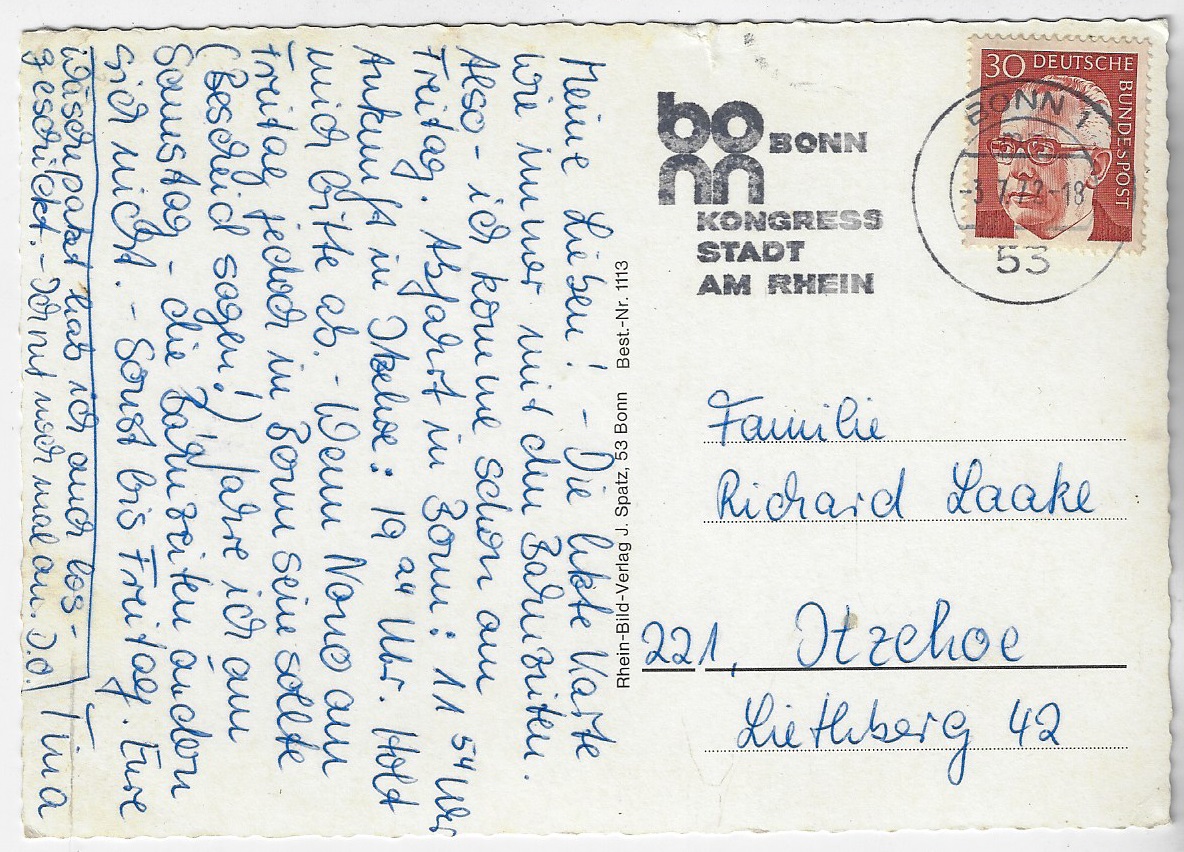 Meine Lieben! - Die letzte Karte
wie immer mit den Bahnzeiten.
Also - ich komme schon am
Freitag. Abfahrt in Bonn: 11 54 Uhr
Ankunft in Itzehoe: 19 Uhr. Holt
mich bitte ab. - Wenn Nono am
Freitag jedoch in Bonn sein sollte
(Bescheid sagen!) fahre ich am
Samstag - die Bahnzeiten ändern
sich nicht. - Sonst bis Freitag. Eure
Tina
Wäschepaket hab ich auch los-
geschickt. - Ich ruf noch mal an. D.O.
Rhein-Bild-Verlag J. Spatz, 53 Bonn Best.-Nr. 1113
bo
nn
BONN
KONGRESS
STADT
AM RHEIN
30 DEUTSCHE
BUNDESPOST
BONN 1
-3.7.72-18
53
Familie
Richard Laake
221, Itzehoe
Liethberg 42